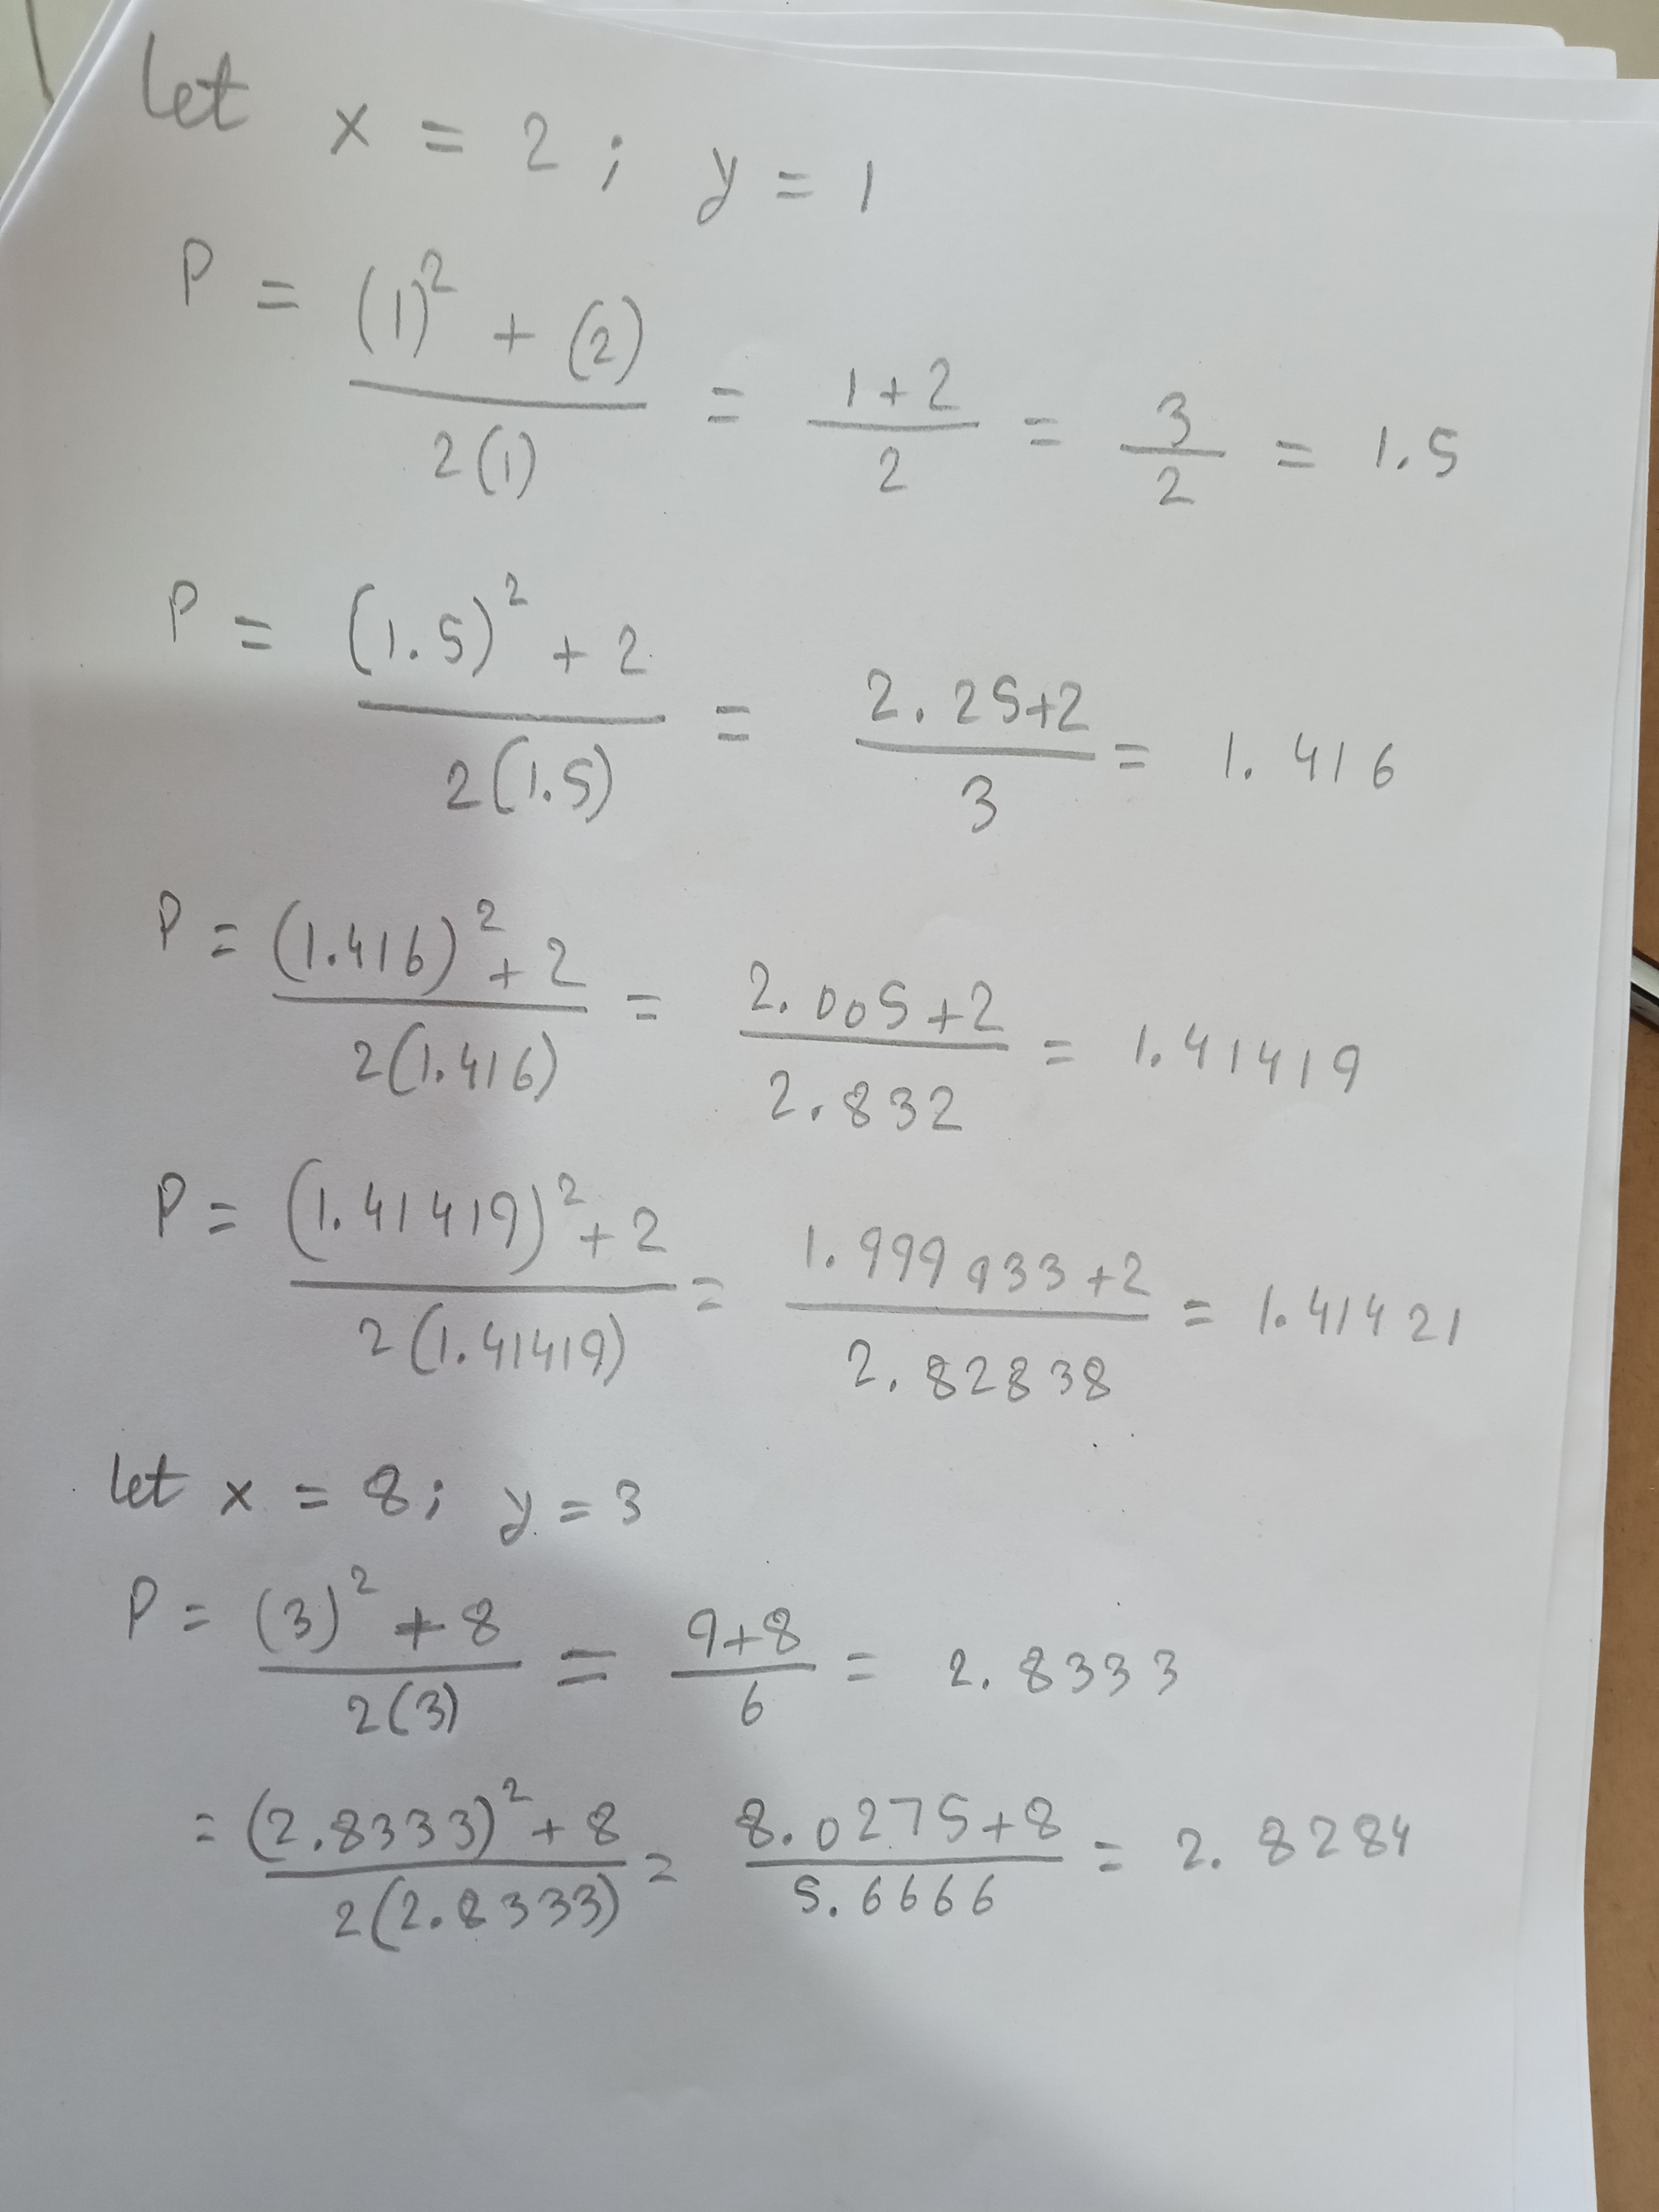 let x = 2 ; y = 1
P = ((1)² + (2)) / (2(1)) = (1+2)/2 = 3/2 = 1.5
P = ((1.5)² + 2) / (2(1.5)) = (2.25+2)/3 = 1.416
P = ((1.416)² + 2) / (2(1.416)) = (2.005+2)/2.832 = 1.41419
P = ((1.41419)² + 2) / (2(1.41419)) = (1.999933+2)/2.82838 = 1.41421
let x = 8; y = 3
P = ((3)² + 8) / (2(3)) = (9+8)/6 = 2.8333
= ((2.8333)² + 8) / (2(2.8333)) = (8.0275+8)/5.6666 = 2.8284